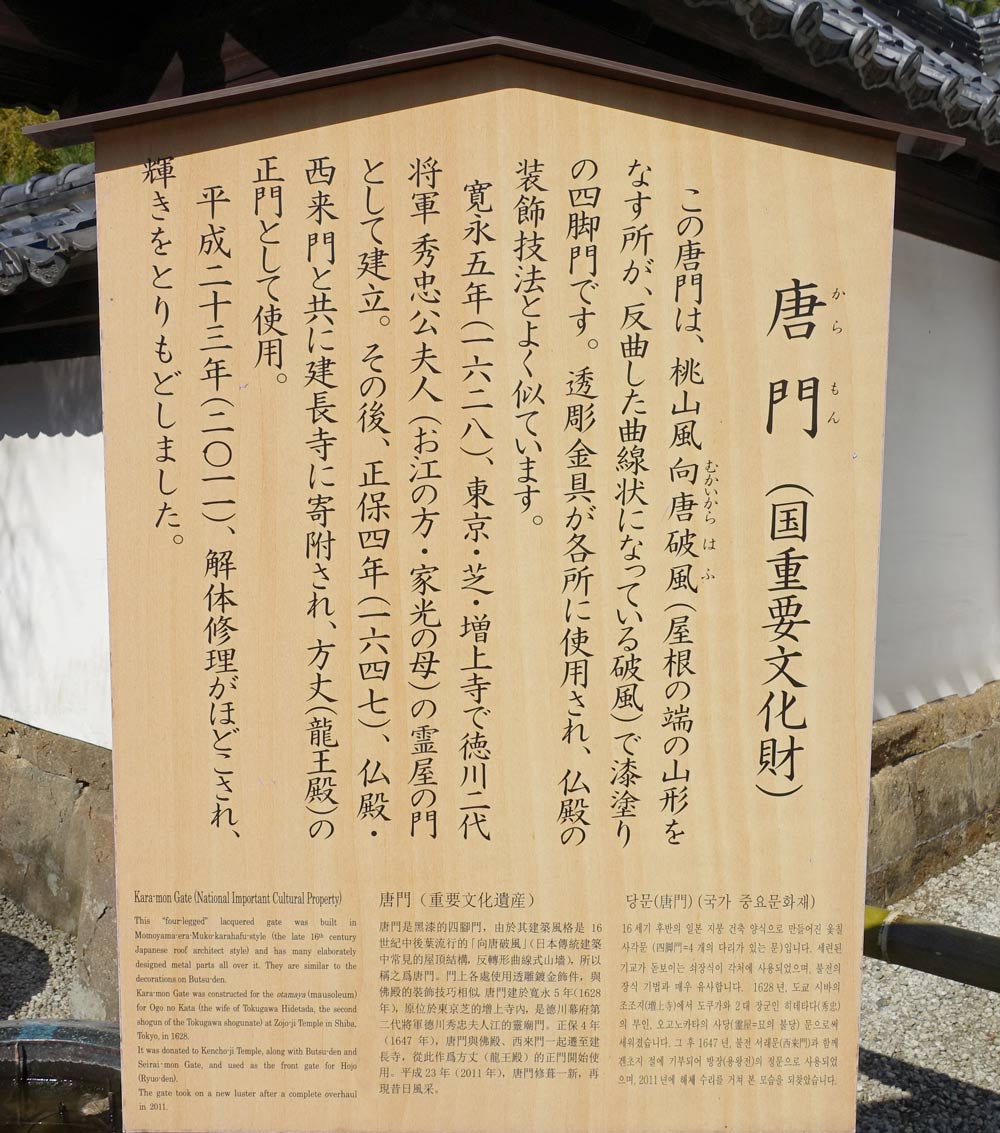 唐門（国重要文化財）
からもん
この唐門は、桃山風向唐破風（屋根の端の山形を
むかいからはふ
なす所が、反曲した曲線状になっている破風）で漆塗り
の四脚門です。透彫金具が各所に使用され、仏殿の
装飾技法とよく似ています。
寛永五年（一六二八）、東京・芝・増上寺で徳川二代
将軍秀忠公夫人（お江の方・家光の母）の霊屋の門
として建立。その後、正保四年（一六四七）、仏殿・
西来門と共に建長寺に寄附され、方丈（龍王殿）の
正門として使用。
平成二十三年（二〇一一）、解体修理がほどこされ、
輝きをとりもどしました。
Kara-mon Gate (National Important Cultural Property)
This "four-legged" lacquered gate was built in
Momoyama-era-Muko-karahafu-style (the late 16th century
Japanese roof architect style) and has many elaborately
designed metal parts all over it. They are similar to the
decorations on Butsu-den.
Kara-mon Gate was constructed for the otamaya (mausoleum)
for Ogo no Kata (the wife of Tokugawa Hidetada, the second
shogun of the Tokugawa shogunate) at Zojo-ji Temple in Shiba,
Tokyo, in 1628.
It was donated to Kencho-ji Temple, along with Butsu-den and
Seirai-mon Gate, and used as the front gate for Hojo
(Ryuo-den).
The gate took on a new luster after a complete overhaul
in 2011.
唐門（重要文化遺産）
唐門是黑漆的四腳門，由於其建築風格是 16
世紀中後葉流行的「向唐破風」（日本傳統建築
中常見的屋頂結構，反轉形曲線式山墻），所以
稱之爲唐門。門上各處使用透雕鍍金飾件，與
佛殿的裝飾技巧相似。唐門建於寬永 5年(1628
年)，原位於東京芝的增上寺內，是德川幕府第
二代將軍德川秀忠夫人江的靈廟門。正保 4 年
（1647 年），唐門與佛殿、西來門一起遷至建
長寺，從此作爲方丈（龍王殿）的正門開始使
用。平成 23 年（2011 年），唐門修葺一新，再
現昔日風采。
당문(唐門) (국가 중요문화재)
16 세기 후반의 일본 지붕 건축 양식으로 만들어진 옻칠
사각문 (四脚門=4 개의 다리가 있는 문)입니다. 세련된
기교가 돋보이는 쇠장식이 각처에 사용되었으며, 불전의
장식 기법과 매우 유사합니다. 1628년, 도쿄 시바의
조조지(増上寺)에서 도쿠가와 2 대 장군인 히데타다(秀忠)
의 부인, 오고노카타의 사당(霊屋=묘의 불당) 문으로써
세워졌습니다. 그 후 1647 년, 불전 서래문(西來門)과 함께
겐초지 절에 기부되어 방장(용왕전)의 정문으로 사용되었
으며, 2011 년에 해체 수리를 거쳐 본 모습을 되찾았습니다.